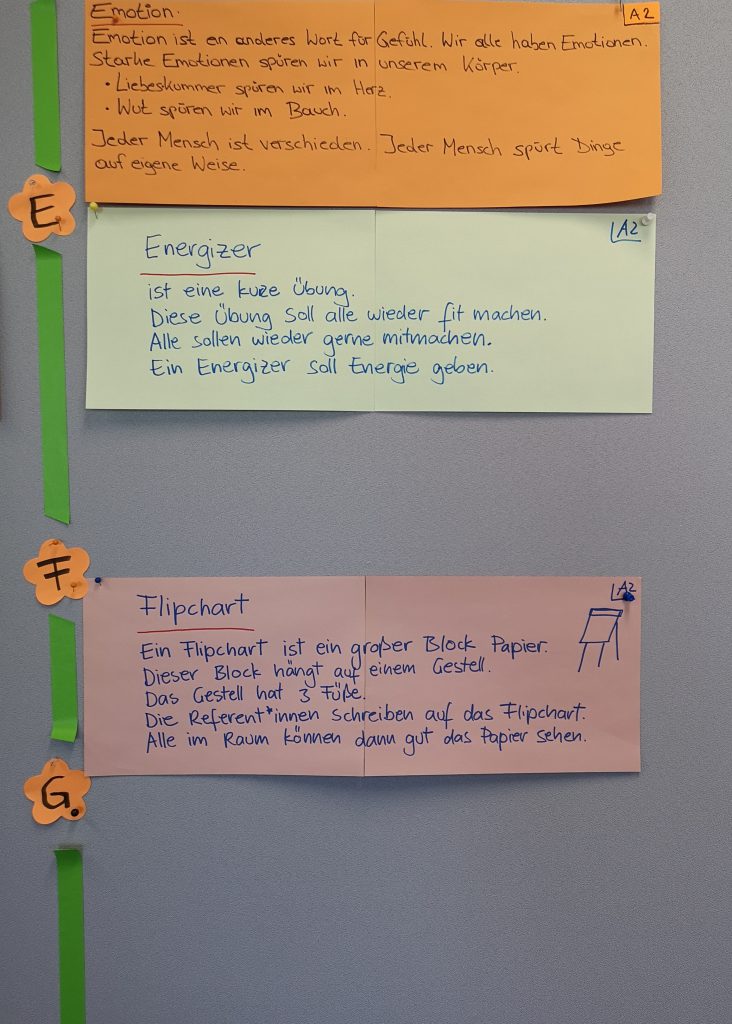 Emotion. A2
Emotion ist ein anderes Wort für Gefühl. Wir alle haben Emotionen.
Starke Emotionen spüren wir in unserem Körper.
• Liebeskummer spüren wir im Herz.
• Wut spüren wir im Bauch.
Jeder Mensch ist verschieden. Jeder Mensch spürt Dinge
auf eigene Weise.
E
Energizer A2
ist eine kurze Übung.
Diese Übung soll alle wieder fit machen.
Alle sollen wieder gerne mitmachen.
Ein Energizer soll Energie geben.
F
Flipchart A2
Ein Flipchart ist ein großer Block Papier.
Dieser Block hängt auf einem Gestell.
Das Gestell hat 3 Füße.
Die Referent*innen schreiben auf das Flipchart.
Alle im Raum können dann gut das Papier sehen.
G